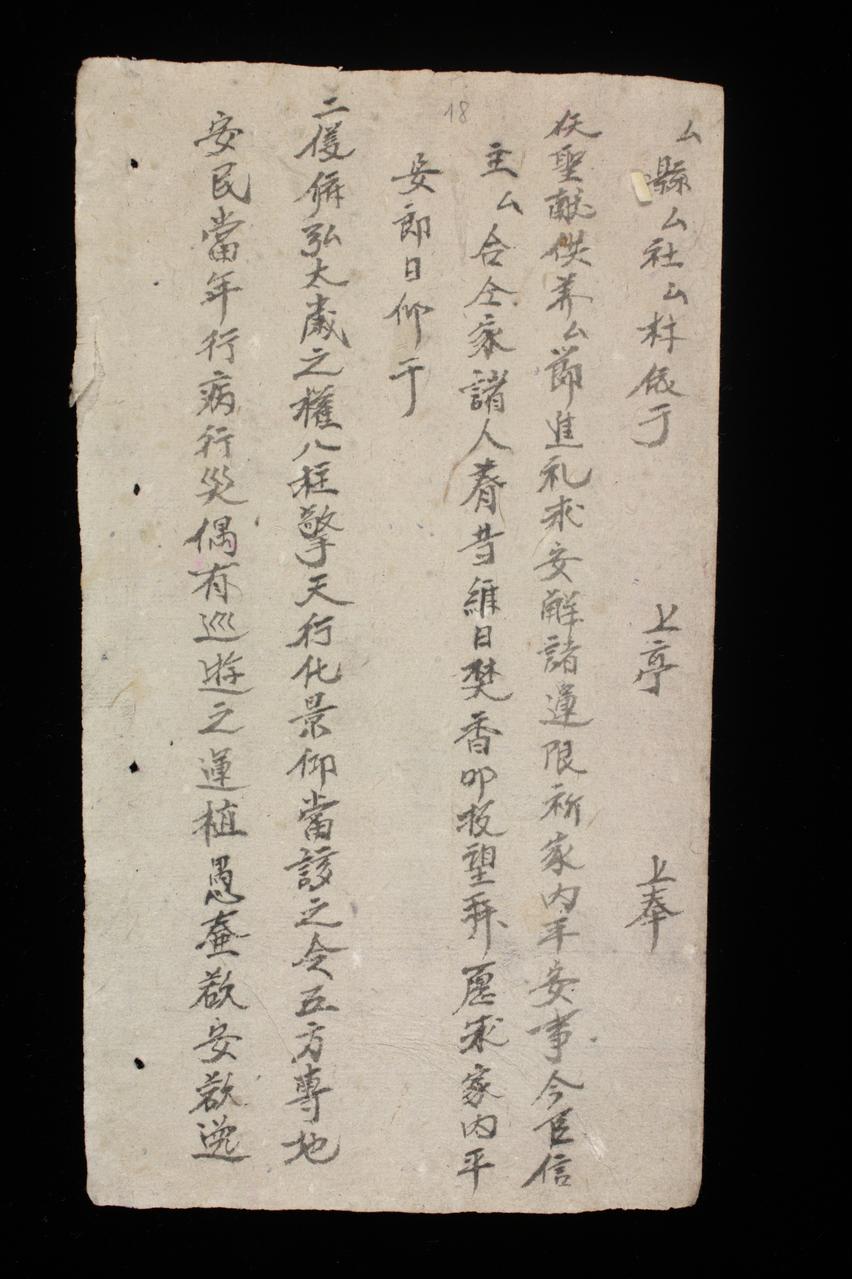 厶縣厶社厶村依于 上亭 上奉
佛聖献供养厶節進礼求安解諸運限祈家内平安事今臣信
主厶合仝家諸人齊昔維日焚香叩扳望拜愿求家内平
安郎日仰于
二儀 弘太歲之權八柱擎天行化景仰當該之令五方專地
安民當年行病行災偶有巡遊之運植愚蠢欲安欲逃
18